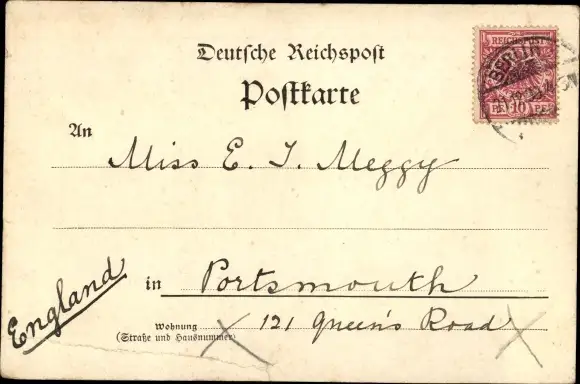 Deutsche Reichspost
Postkarte
REICHSPOST
BERLIN
10
An
Miss E. J. Meggy
in Portsmouth
England
Wohnung
(Straße und Hausnummer)
121 Queen's Road